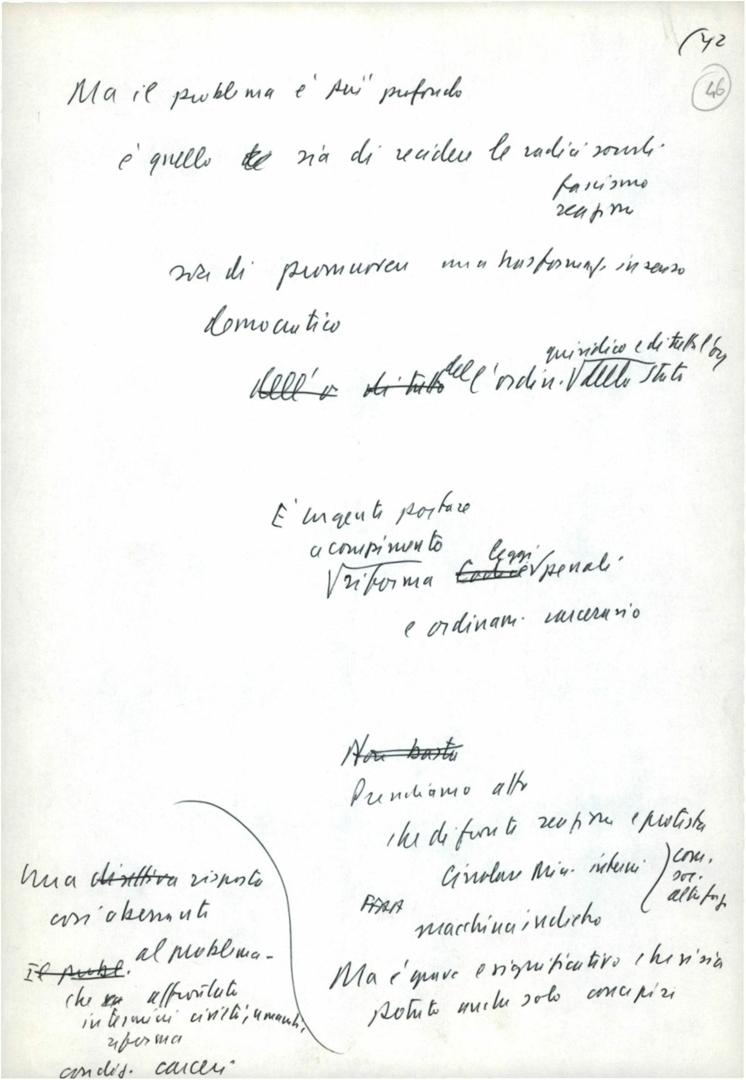 (42
46
Ma il problema è più profondo
è quello sia di recidere le radici
fascismo
reazione
sia di promuovere una trasformaz. in senso
democratico
giuridico e di tutto l'
dell'o di tutto dell'ordin. dello Stato
E' urgente portare
a compimento
leggi
riforma Codice penali
e ordinam. carcerario
Non basta
Prendiamo atto
che di fronte reazioni e proteste
Circolare Min. interni
com.
soc.
altre
macchina indietro
Ma è grave e significativo che si sia
potuto anche solo concepire
Una direttiva risposta
così aberrante
al problema-
Il probl.
che va affrontato
in termini civili, umanit,
riforma
condiz. carceri